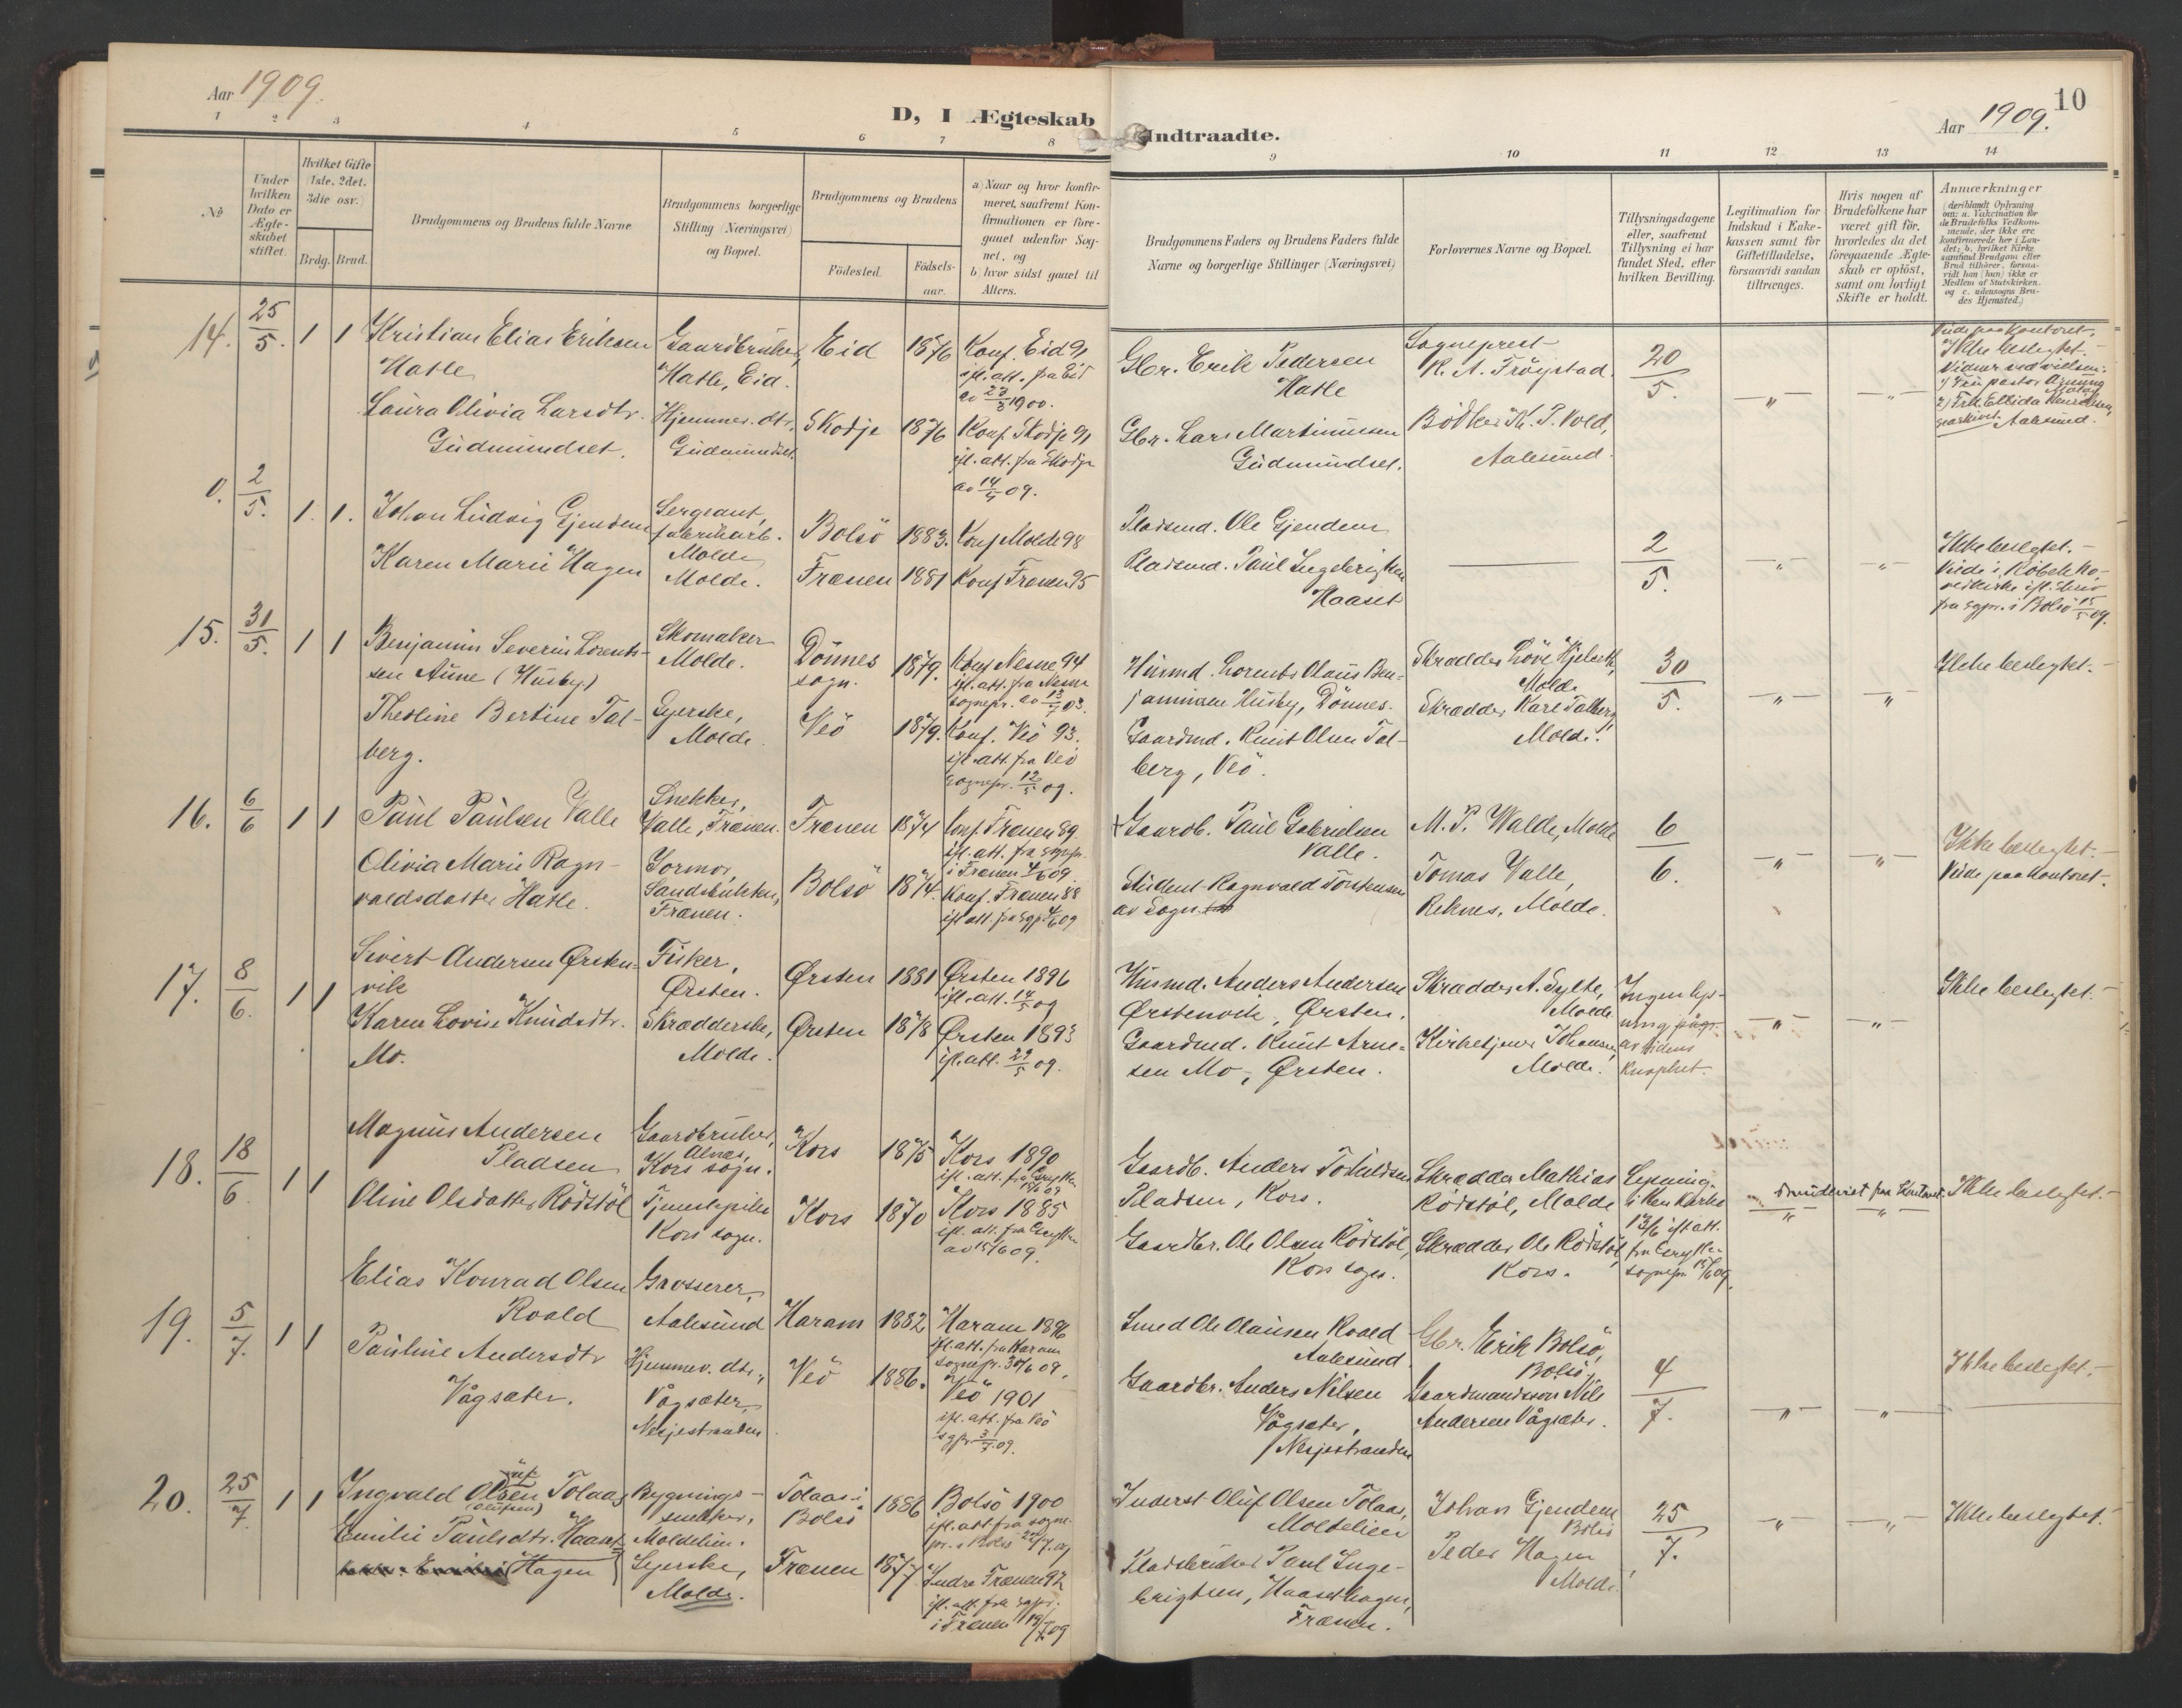 Aar 1909.
D, I Ægteskab
Indtraadte.
Aar 1909.
10
1 2 3 4 5 6 7 8 9 10 11 12 13 14
No
Under hvilken Dato er Ægteskabet stiftet.
Hvilket Gifte (1ste, 2det, 3die osv.)
Brdg. Brud.
Brudgommens og Brudens fulde Navne
Brudgommens borgerlige Stilling (Næringsvei) og Bopæl.
Brudgommens og Brudens
Födested.
Födselsaar.
a) Naar og hvor konfirmeret, saafremt Konfirmationen er foregaaet udenfor Sognet, og
b) hvor sidst gaaet til Alters.
Brudgommens Faders og Brudens Faders fulde Navne og borgerlige Stillinger (Næringsvei)
Forlovernes Navne og Bopæl.
Tillysningsdagene eller, saafremt Tillysning ei har fundet Sted, efter hvilken Bevilling.
Legitimation for Indskud i Enkekassen samt for Giftetilladelse, forsaavidt saadan tiltrænges.
Hvis nogen af Brudefolkene har været gift för, hvorledes da det foregaaende Ægteskab er oplöst, samt om lovligt Skifte er holdt.
Anmærkninger
(deriblandt Oplysning om: a. Vaccination for de Brudefolks Vedkommende, der ikke ere konfirmerede her i Landet; b. hvilket Kirkesamfund Brudgom eller Brud tilhörer, forsaavidt han (hun) ikke er Medlem af Statskirken, og c. udensogns Brudes Hjemsted.)
14. 25/5. 1 1
Kristian Elias Eriksen
Hatle
Gaardbruker,
Hatle, Eid.
Eid 1876
Konf. Eid 91
ifl. att. fra Eid
Gbr. Erik Pedersen
Hatle
Sogneprest
K. A. Fröystad.
20/5.
Viede paa Kontoret.
Ikke beslegtet.
Vidner ved vielsen:
Laura Olivia Larsdtr.
Gudmundset.
Hjemmev. dtr.
Gudmundset.
Skodje 1876
Konf. Skodje 91
ifl. att. fra Skodje
av 14/4 09.
Gbr. Lars Martinussen
Gudmundset.
Bödker K. P. Vold,
Aalesund.
Aalesund.
0. 2/5. 1. 1.
Johan Ludvig Gjendem
Sergeant,
fabrikarb.
Molde
Bolsö 1883.
Konf Molde 98
Pladsmd. Ole Gjendem
2/5.
Ikke beslegtet.
Karen Marie Hagen
Molde.
Frænen 1881
Konf Frænen 95
Pladsmd. Paul Ingebrigtsen
Haaset
fra sgpr. i Bolsö 15/5 09.
15. 31/5. 1 1
Benjamin Severin Lorentssen
Aune (Husby.)
Skomaker
Molde.
Dönnes
sogn.
1879.
Konf Nesne 94
ifl. att. fra Nesne
sognepr. av 13/7 03.
Husmd. Lorents Olaus Benjaminsen
Husby, Dönnes.
Molde
30/5.
Ikke beslegtet.
Theoline Bertine Talberg.
Syerske,
Molde.
Veö 1879.
Konf. Veö 93.
ifl. att. fra Veö
sognepr. 12/5 09.
Gaardmd. Knut Olsen Talberg,
Veö.
Skrædder Karl Talberg,
Molde.
16. 6/6 1 1
Paul Paulsen Valle
Snekker,
Valle, Frænen.
Frænen 1874
Konf. Frænen 89
ifl. att. fra sognpr.
i Frænen 4/6 09.
Gaardb. Paul Gabrielsen
Valle.
M. P. Walde, Molde
6/6.
Ikke beslegtet.
Viede paa Kontoret.
Olivia Marie Ragnvaldsdatter
Hatle.
Jormor,
Sandsbukten,
Frænen.
Bolsö 1874.
Konf. Frænen 88
ifl att. fra sgpr 4/6 09
Student Ragnvald Torstensen
av Sogn
Tomas Valle,
Reknes, Molde.
17. 8/6. 1 1
Sivert Andersen Ørstenvik
Fisker,
Ørsten.
Ørsten 1881
Ørsten 1896
ifl. att. 14/5 09
Husmd. Anders Andersen
Ørstenvik, Ørsten.
Skrædder A. Sylte,
Molde
Ingen lysning pågr.
av tidens
knaphet.
Ikke beslegtet.
Karen Lovise Knudsdtr.
Mo.
Skrædderske,
Molde.
Ørsten 1878
Ørsten 1893
ifl. att. 29/5 09.
Gaardmd. Knut Arnesen
Mo, Ørsten.
Kirketjener Johansen,
Molde.
18. 18/6 1 1
Magnus Andersen
Pladsen
Gaardbruker,
Alnæs,
Kors sogn.
Kors 1875
Kors 1890
ifl. att. fra Grytten
15/6 09
Gaardb. Anders
Pladsen, Kors.
Skrædder Mathias
Rödstöl, Molde
Lysning
i Kors Kirke
13/6 ifl att.
fra Grytten
sognepr. 15/6 09.
Ikke beslegtet.
Oline Olsdatter Rödstöl
Tjenestepike
Kors sogn.
Kors 1870
Kors 1885
ifl. att. fra Grytten
av 15/6 09.
Gaardbr. Ole Olsen Rödstöl,
Kors sogn.
Skrædder Ole Rödstöl,
Kors.
19. 5/7. 1 1
Elias Konrad Olsen
Roald
Grosserer,
Aalesund
Haram 1882
Haram 1896
ifl. att. fra Haram
sognepr. 30/6 09.
Smed Ole Olausen Roald
Aalesund
Gbr. Erik Bolsö,
Bolsö.
4/7.
Ikke beslegtet.
Pauline Andersdtr
Vågsæter.
Hjemmev. dtr.,
Vågsæter,
Nesjestranden
Veö 1886.
Veö 1901
ifl. att. fra Veö
sgpr. 3/7. 09.
Gaardbr. Anders Nilsen
Vågsæter,
Nesjestranden
Gaardmandssøn Nils
Andersen Vågsæter.
20. 25/7 1 1
Ingvald Olsen Tolaas
(Olufsen)
Bygningssnekker,
Moldelien.
Tolaas i
Bolsö
1886
Bolsö 1900
ifl. att. fra sognepr.
i Bolsö 22/7. 09
Inderst Oluf Olsen Tolaas,
Moldelien
Johan Gjendem
Bolsö
25/7.
Ikke beslegtet.
Emilie Paulsdtr. Haaset
Hagen
Syerske,
Molde.
Frænen 1877
Indre Frænen 92
ifl. att. fra sgpr.
i Frænen 19/7 09
Pladsbruker Paul Ingebrigtsen,
Haasethagen,
Frænen.
Peder Hagen
Molde.